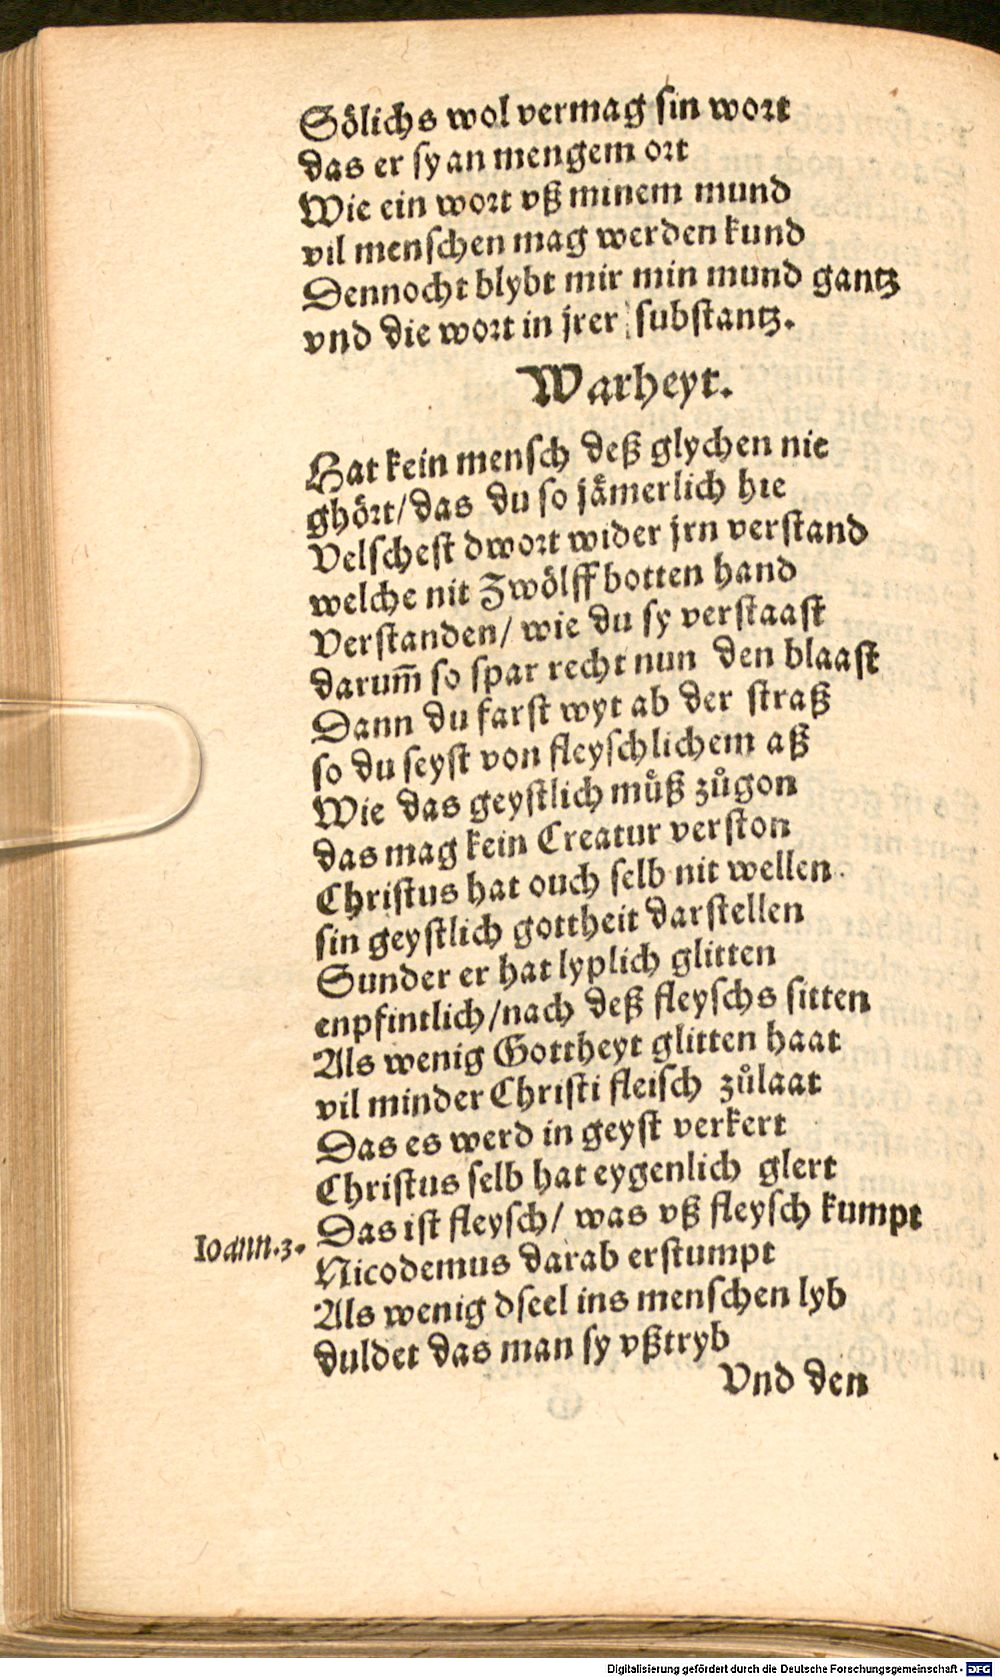 Soͤlichs wol vermag ſin wort
das er ſy an mengem ort
Wie ein wort vß minem mund
vil menſchen mag werden kund
Dennocht blybt mir min mund gantz
vnd die wort in jrer ſubſtantz.
Warheyt.
Hat kein menſch deß glychen nie
ghoͤrt/ das du ſo jaͤmerlich hie
Velſcheſt dwort wider jrn verſtand
welche nit Zwoͤlffbotten hand
Verſtanden/ wie du ſy verſtaaſt
darum̃ ſo ſpar recht nun den blaaſt
Dann du farſt wyt ab der ſtraß
ſo du ſeyſt von fleyſchlichem aß
Wie das geyſtlich muͤß zuͦgon
das mag kein Creatur verſton
Chriſtus hat ouch ſelb nit wellen
ſin geyſtlich gottheit darſtellen
Sunder er hat lyplich glitten
enpfintlich/ nach deß fleyſchs ſitten
Als wenig Gottheyt glitten haat
vil minder Chriſti fleiſch zuͦlaat
Das es werd in geyſt verkert
Chriſtus ſelb hat eygenlich glert
Das iſt fleyſch/ was vß fleyſch kumpt
Ioann.3.
Nicodemus darab erſtumpt
Als wenig dſeel ins menſchen lyb
duldet das man ſy vßtryb
Vnd den
Digitalisierung gefördert durch die Deutsche Forschungsgemeinschaft - DFG